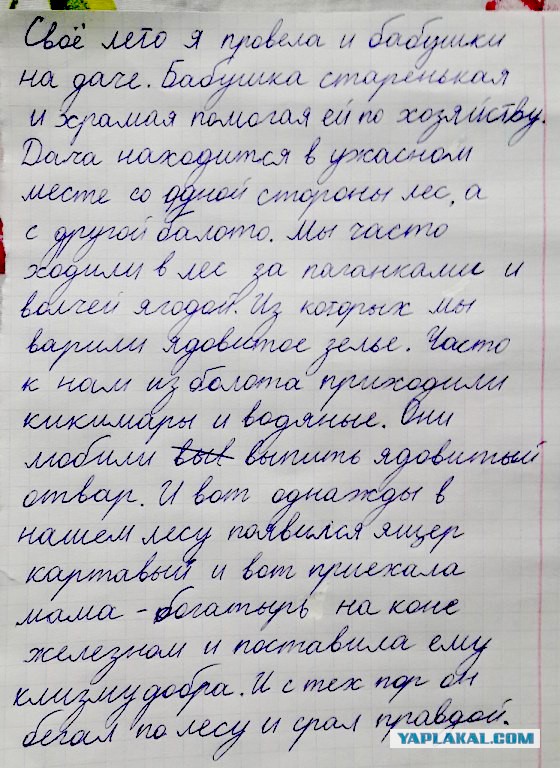 Своё лето я провела и бабушки
на даче. Бабушка старенькая
и храмая помогая ей по хозяйству.
Дача находится в ужасном
месте со одной стороны лес, а
с другой балото. Мы часто
ходили в лес за паганками и
волчей ягодой. Из которых мы
варили ядовитое зелье. Часто
к нам из болота приходили
кикимары и водяные. Они
любили выпить ядовитый
отвар. И вот однажды в
нашем лесу появился ящер
картавый и вот приехала
мама - богатырь на коне
железном и поставила ему
клизму добра. И с тех пор он
бегал по лесу и срал правдой.
YAPLAKAL.COM